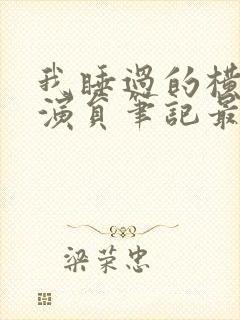 我睡過的橫
演員筆記最
梁荣忠